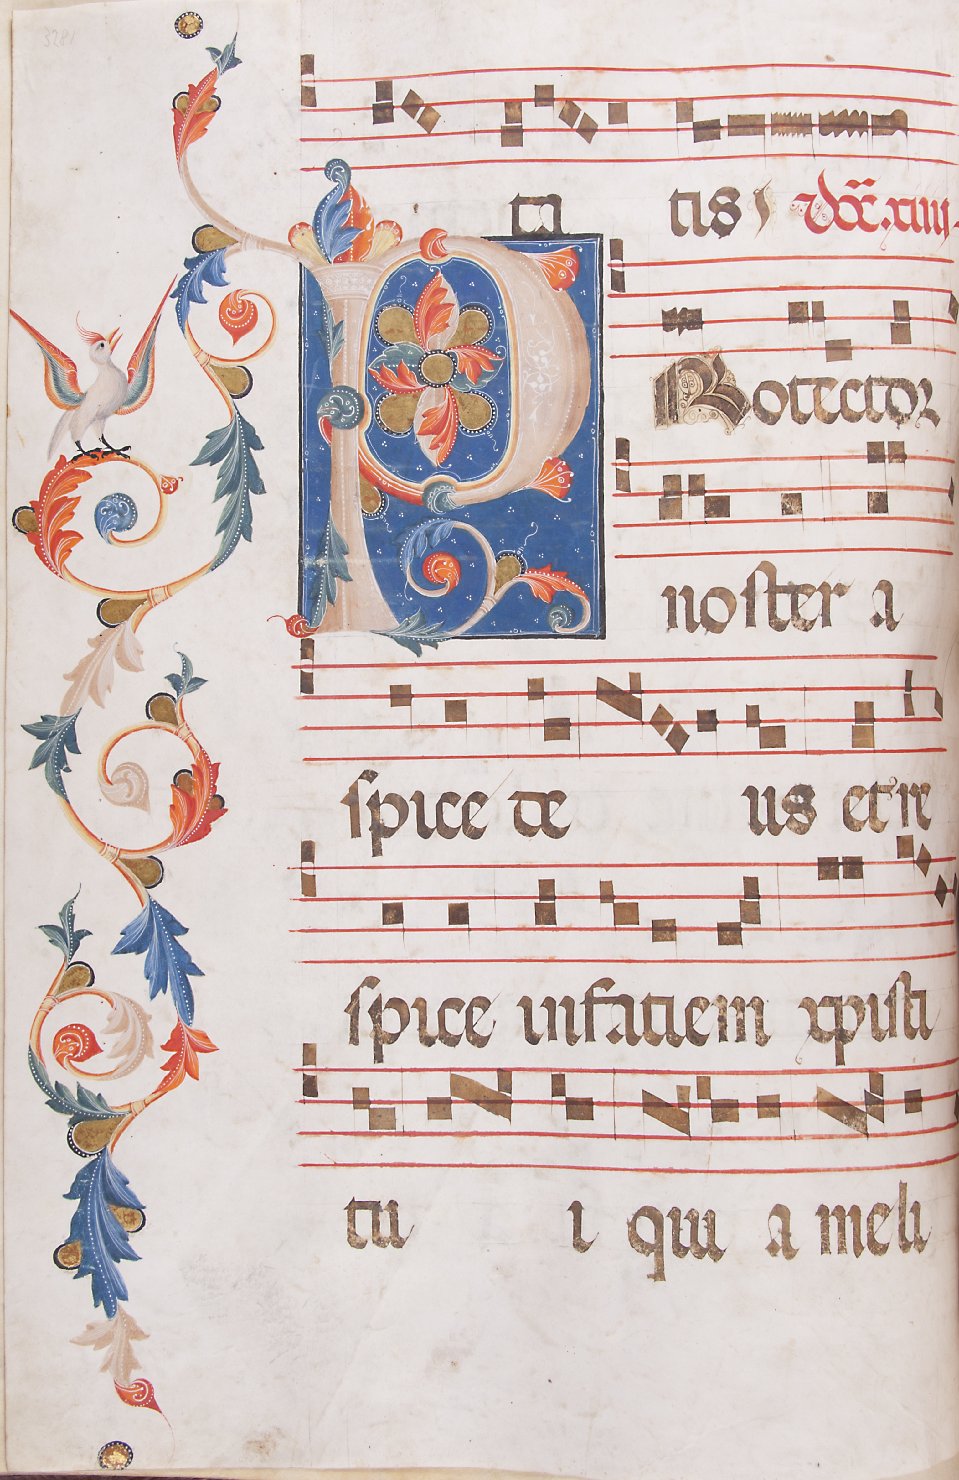 3281
ta tis do͞c. xiiij.
PRotector
noster a
spice de us et re
spice in faciem xpisti
tu i qui a meli